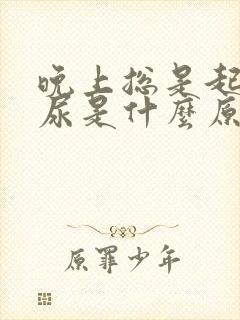 晚上總是起
尿是什麼原
原罪少年